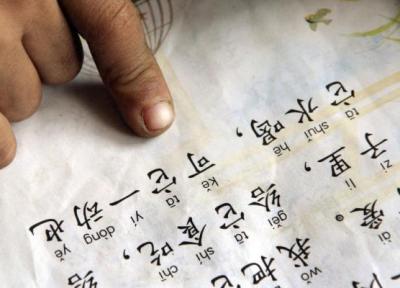 ài wǒ
爱。我把它
zi lǐ gěi tā shí chī
子里，给它食吃，给
tā shuǐ hē kě tā yí dòng yě
它水喝，可它一动也